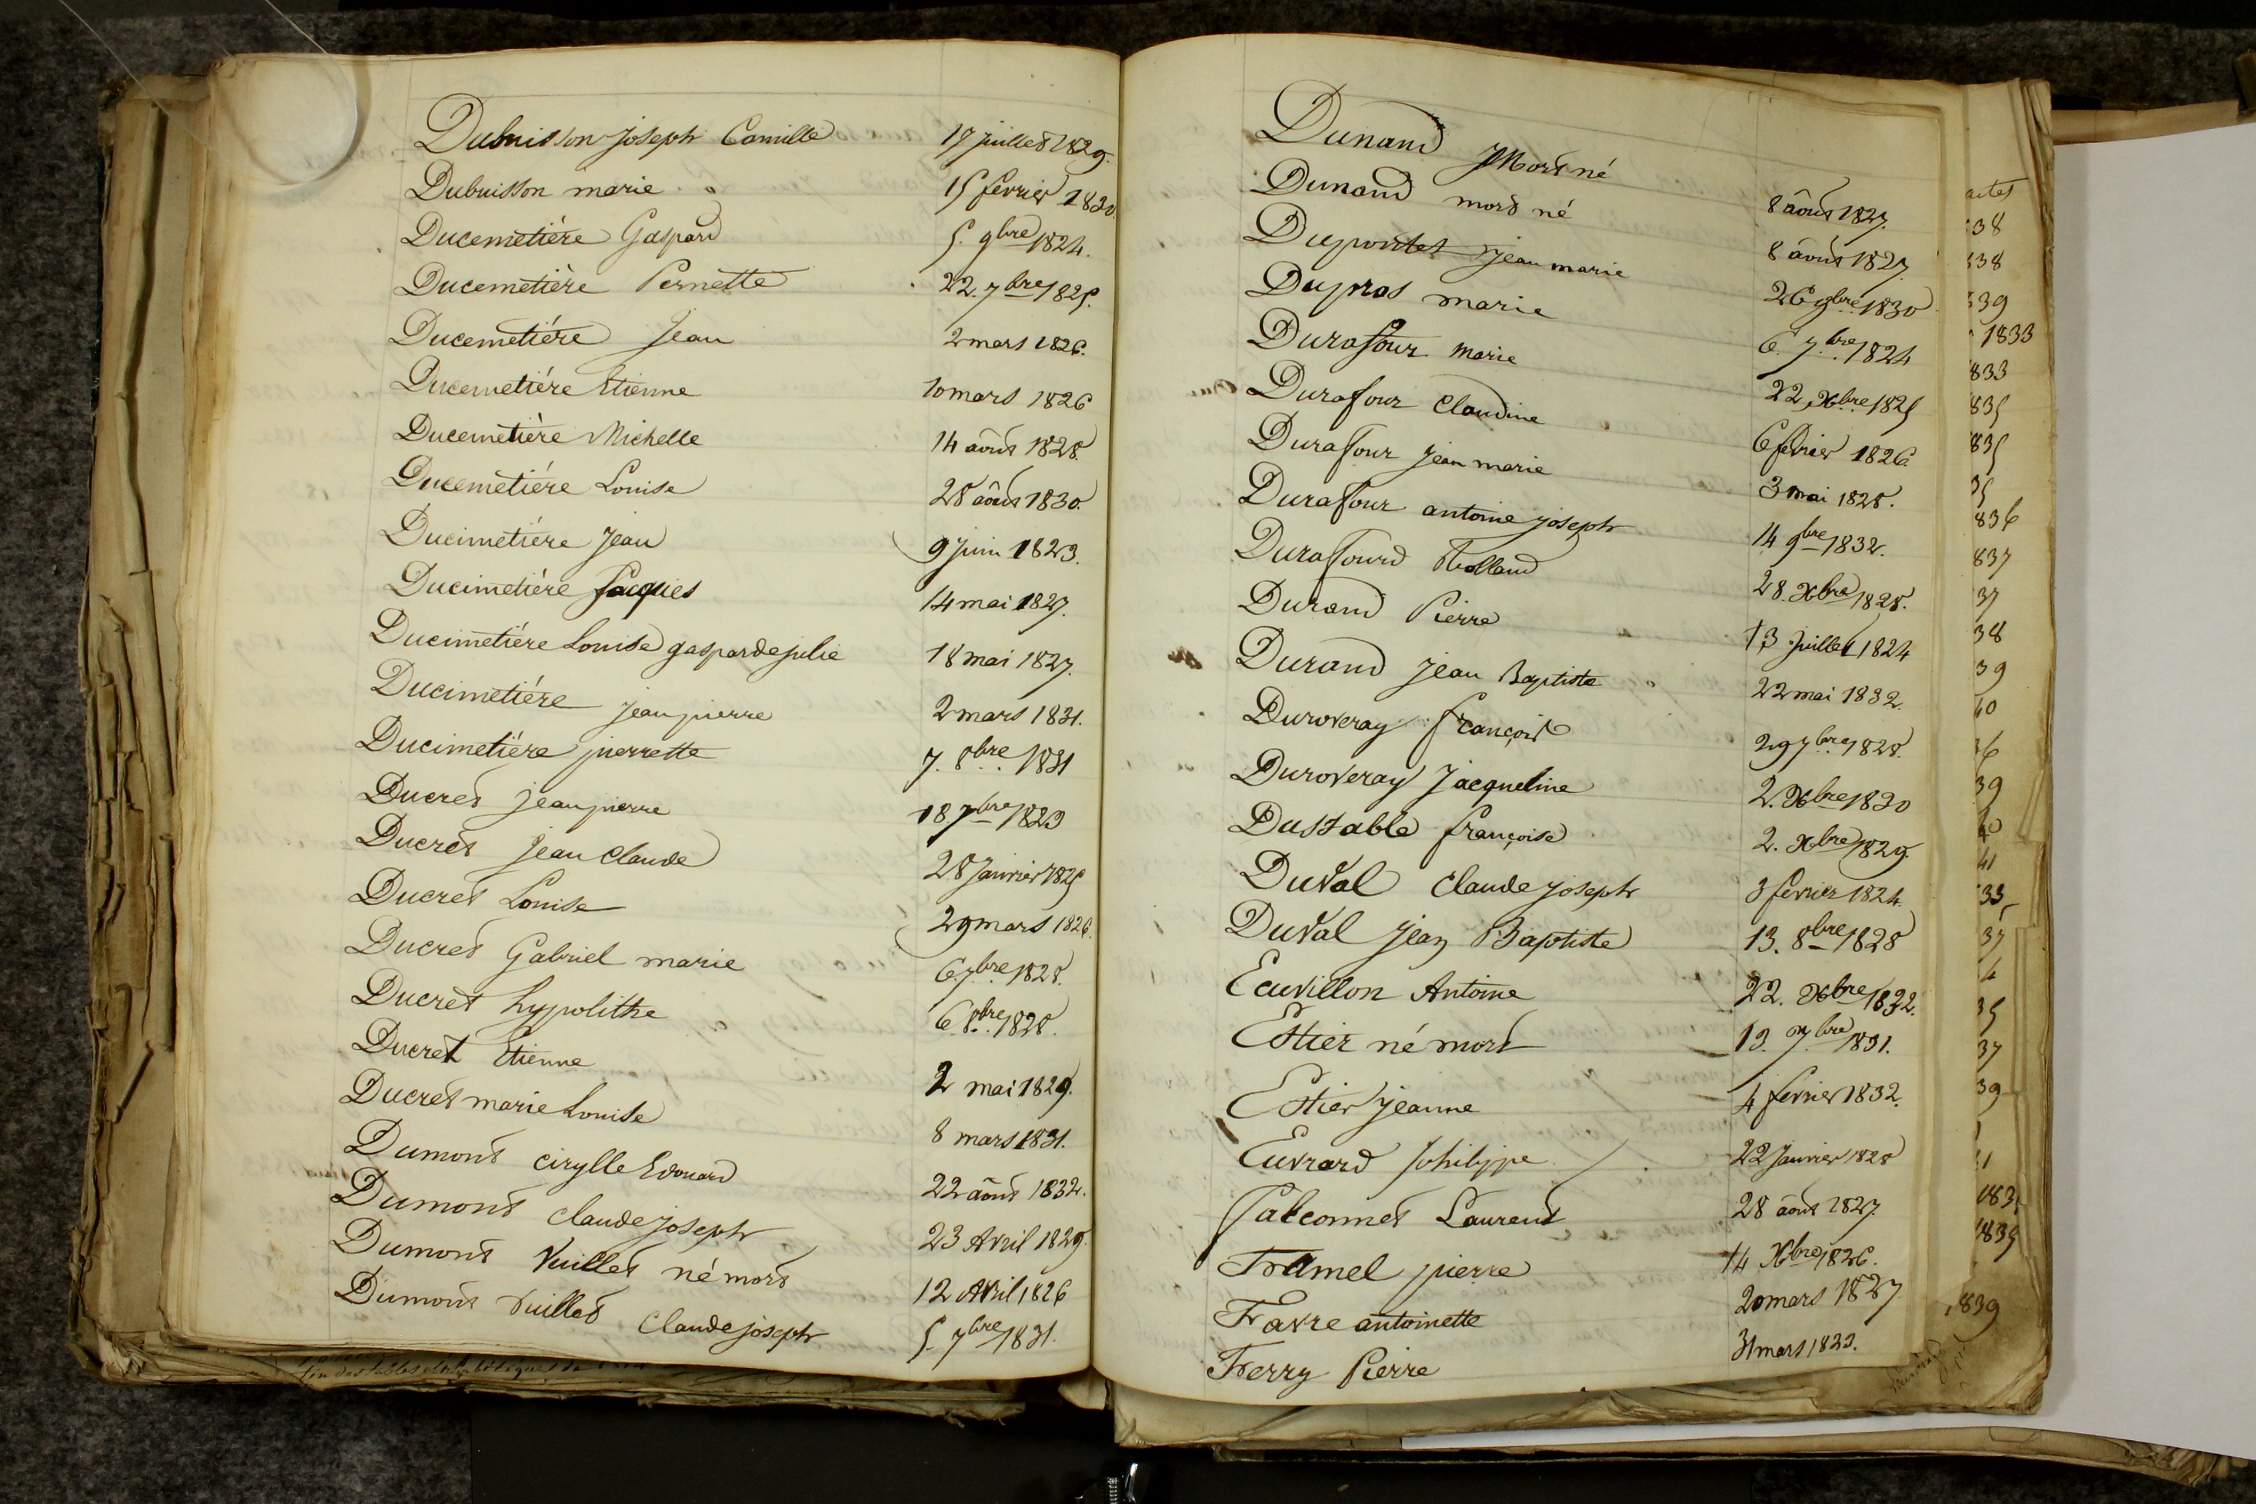 Dubuisson joseph Camille 17 juillet 1829.
Dubuisson marie 15 fevrier 1830
Ducemetière Gaspard 5. 9bre 1824.
Ducemetière Pernette 22. 7bre 1825.
Ducemetière Jean 2 mars 1826.
Ducemetière Etienne 10 mars 1826
Ducemetière Michelle 14 aôut 1828.
Ducemetière Louise 28 aôut 1830.
Ducimetière Jean 9 juin 1823.
Ducimetière Jacques 14 mai 1827.
Ducimetière Louise gasparde julie 18 mai 1827.
Ducimetière jean pierre 2 mars 1831.
Ducimetière pierrette 7. 8bre 1831
Ducret jean pierre 18 7bre 1823
Ducret jean claude 28 Janvier 1825
Ducret Louise 29 mars 1826.
Ducret Gabriel marie 6. 7bre 1828.
Ducret hypolithe 6. 8bre 1828.
Ducret Etienne 2 mai 1829.
Ducret marie Louise 8 mars 1831.
Dumont cirylle Edouard 22 aôut 1832.
Dumont claude joseph 23 Avril 1829.
Dumont Vuillet né mort 12 Avril 1826
Dumont vuillet claude joseph 5. 7bre 1831.
Dunand Mort né 8 aôut 1827.
Dunand mort né 8 aôut 1827.
Dupontet jean marie 26 9bre 1830
Dupras marie 6. 7bre 1824
Durafour marie 22 Xbre 1825
Durafour Claudine 6 fevrier 1826
Durafour jean marie 3 mai 1828.
Durafour antoine joseph 14 9bre 1832.
Durafourd Rolland 28. Xbre 1828.
Durand Pierre 13 juillet 1824
Durand jean Baptiste 22 mai 1832.
Duroveray françois 29 7bre 1828.
Duroveray Jacqueline 2. Xbre 1830
Dustable françoise 2. Xbre 1829.
Duval Claude joseph 3 fevrier 1824.
Duval jean Baptiste 13. 8bre 1828
Ecuvillon Antoine 22. Xbre 1832.
Estier né mort 13. 7bre 1831.
Estier jeanne 4 fevrier 1832.
Euvrard philippe 22 Janvier 1828
Falconnet Laurent 28 aôut 1827.
Framel pierre 14 Xbre 1826.
Favre antoinette 20 mars 1827
Ferry Pierre 31 mars 1823.
actes
38
838
839
1833
833
835
835
35
836
837
37
38
39
40
39
40
41
35
37
35
37
39
1839
1839